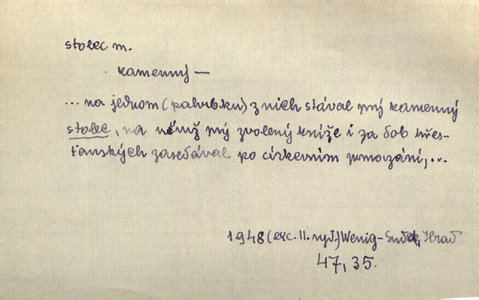 stolec m.
kamenný —
... na jednom (palouku) z nich stával prý kamenný
stolec, na němž prý zvolený kníže i za dob křes-
ťanských zasedával po církevním pomazání, ...
1948 (exc. II. vyd.) Wenig- Hrad
47, 35.